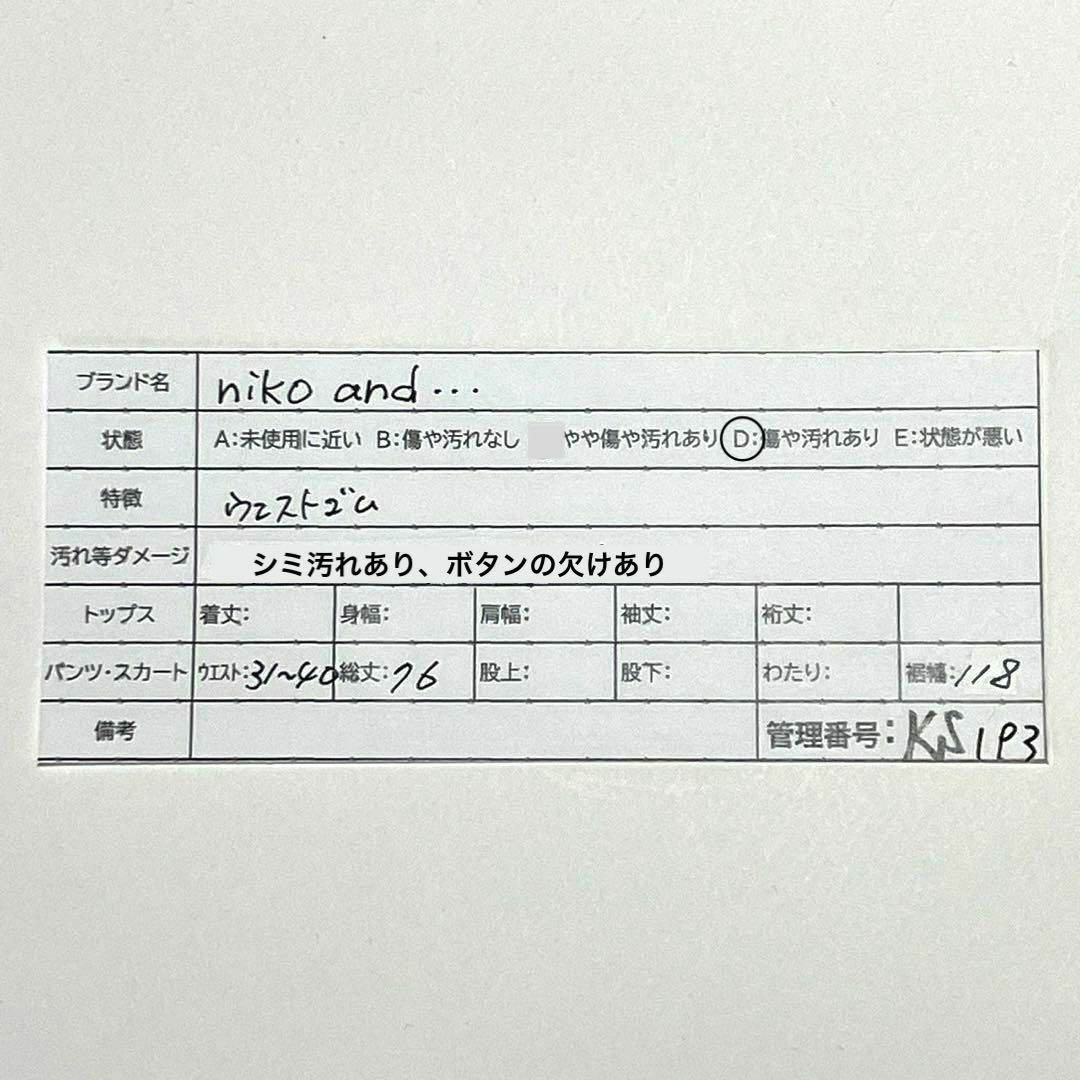 ブランド名 niko and...
状態 A:未使用に近い B:傷や汚れなし やや傷や汚れあり D:傷や汚れあり E:状態が悪い
特徴 ウエストゴム
汚れ等ダメージ シミ汚れあり、ボタンの欠けあり
トップス 着丈: 身幅: 肩幅: 袖丈: 裄丈:
パンツ・スカート ウエスト:31~40 総丈:76 股上: 股下: わたり: 裾幅:118
備考 管理番号:KS193